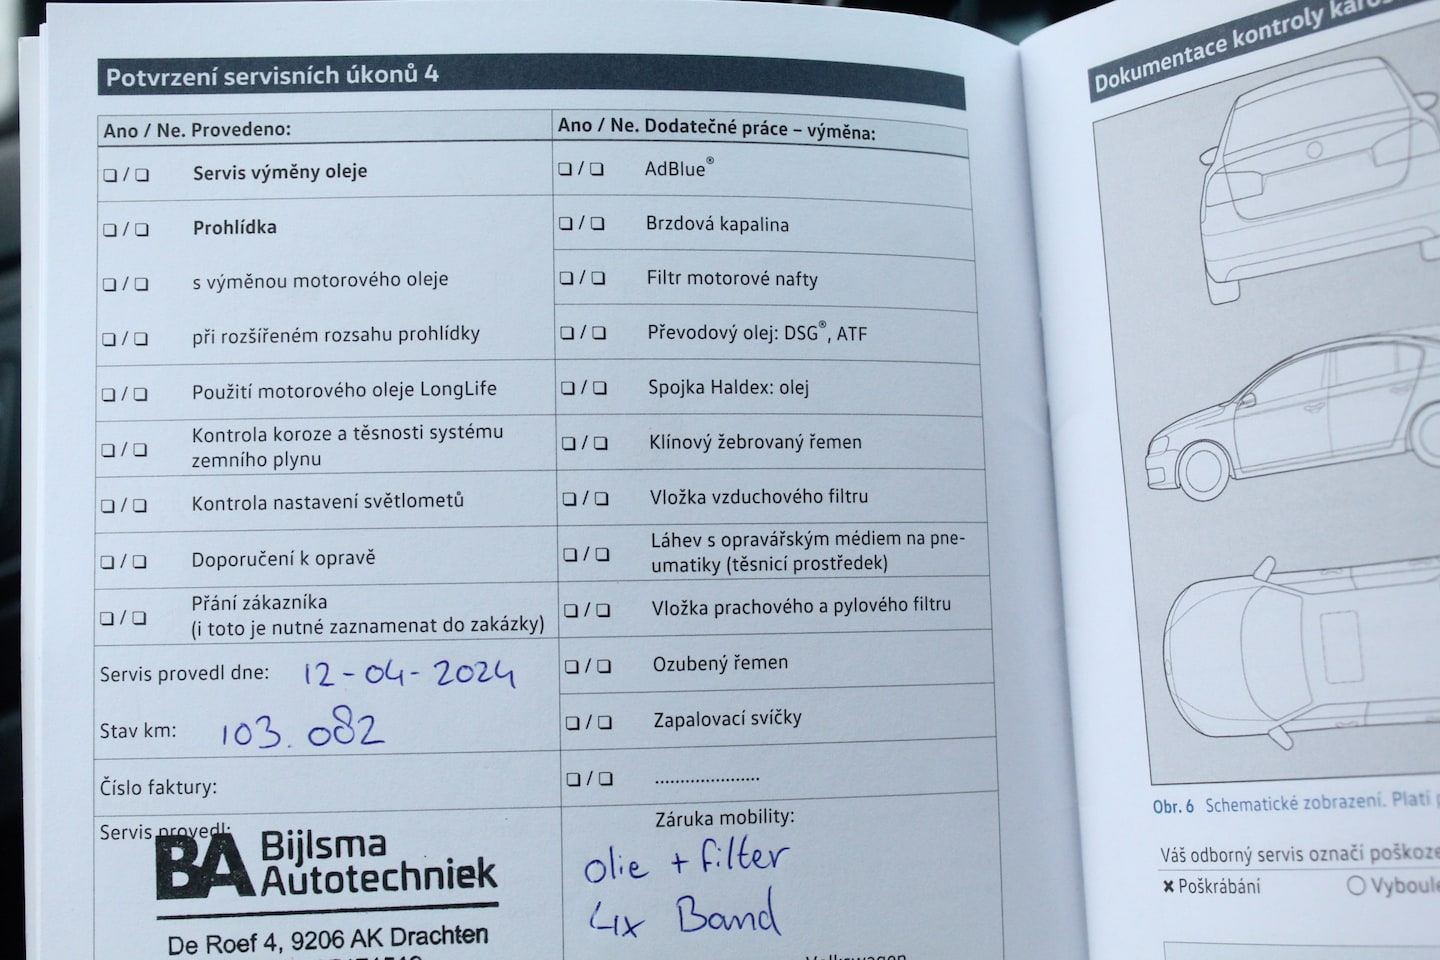 Potvrzení servisních úkonů 4
Ano / Ne. Provedeno:
❏ / ❏ Servis výměny oleje
❏ / ❏ Prohlídka
❏ / ❏ s výměnou motorového oleje
❏ / ❏ při rozšířeném rozsahu prohlídky
❏ / ❏ Použití motorového oleje LongLife
❏ / ❏ Kontrola koroze a těsnosti systému
zemního plynu
❏ / ❏ Kontrola nastavení světlometů
❏ / ❏ Doporučení k opravě
❏ / ❏ Přání zákazníka
(i toto je nutné zaznamenat do zakázky)
Servis provedl dne: 12-04-2024
Stav km: 103.082
Číslo faktury:
Servis provedl:
BA Bijlsma
Autotechniek
De Roef 4, 9206 AK Drachten
Ano / Ne. Dodatečné práce – výměna:
❏ / ❏ AdBlue®
❏ / ❏ Brzdová kapalina
❏ / ❏ Filtr motorové nafty
❏ / ❏ Převodový olej: DSG®, ATF
❏ / ❏ Spojka Haldex: olej
❏ / ❏ Klínový žebrovaný řemen
❏ / ❏ Vložka vzduchového filtru
❏ / ❏ Láhev s opravářským médiem na pne-
umatiky (těsnicí prostředek)
❏ / ❏ Vložka prachového a pylového filtru
❏ / ❏ Ozubený řemen
❏ / ❏ Zapalovací svíčky
❏ / ❏ .....................
Záruka mobility:
olie + filter
4x Band
Volkswagen
Dokumentace kontroly
Obr. 6 Schematické zobrazení. Platí
Váš odborný servis označí
✖ Poškrábání